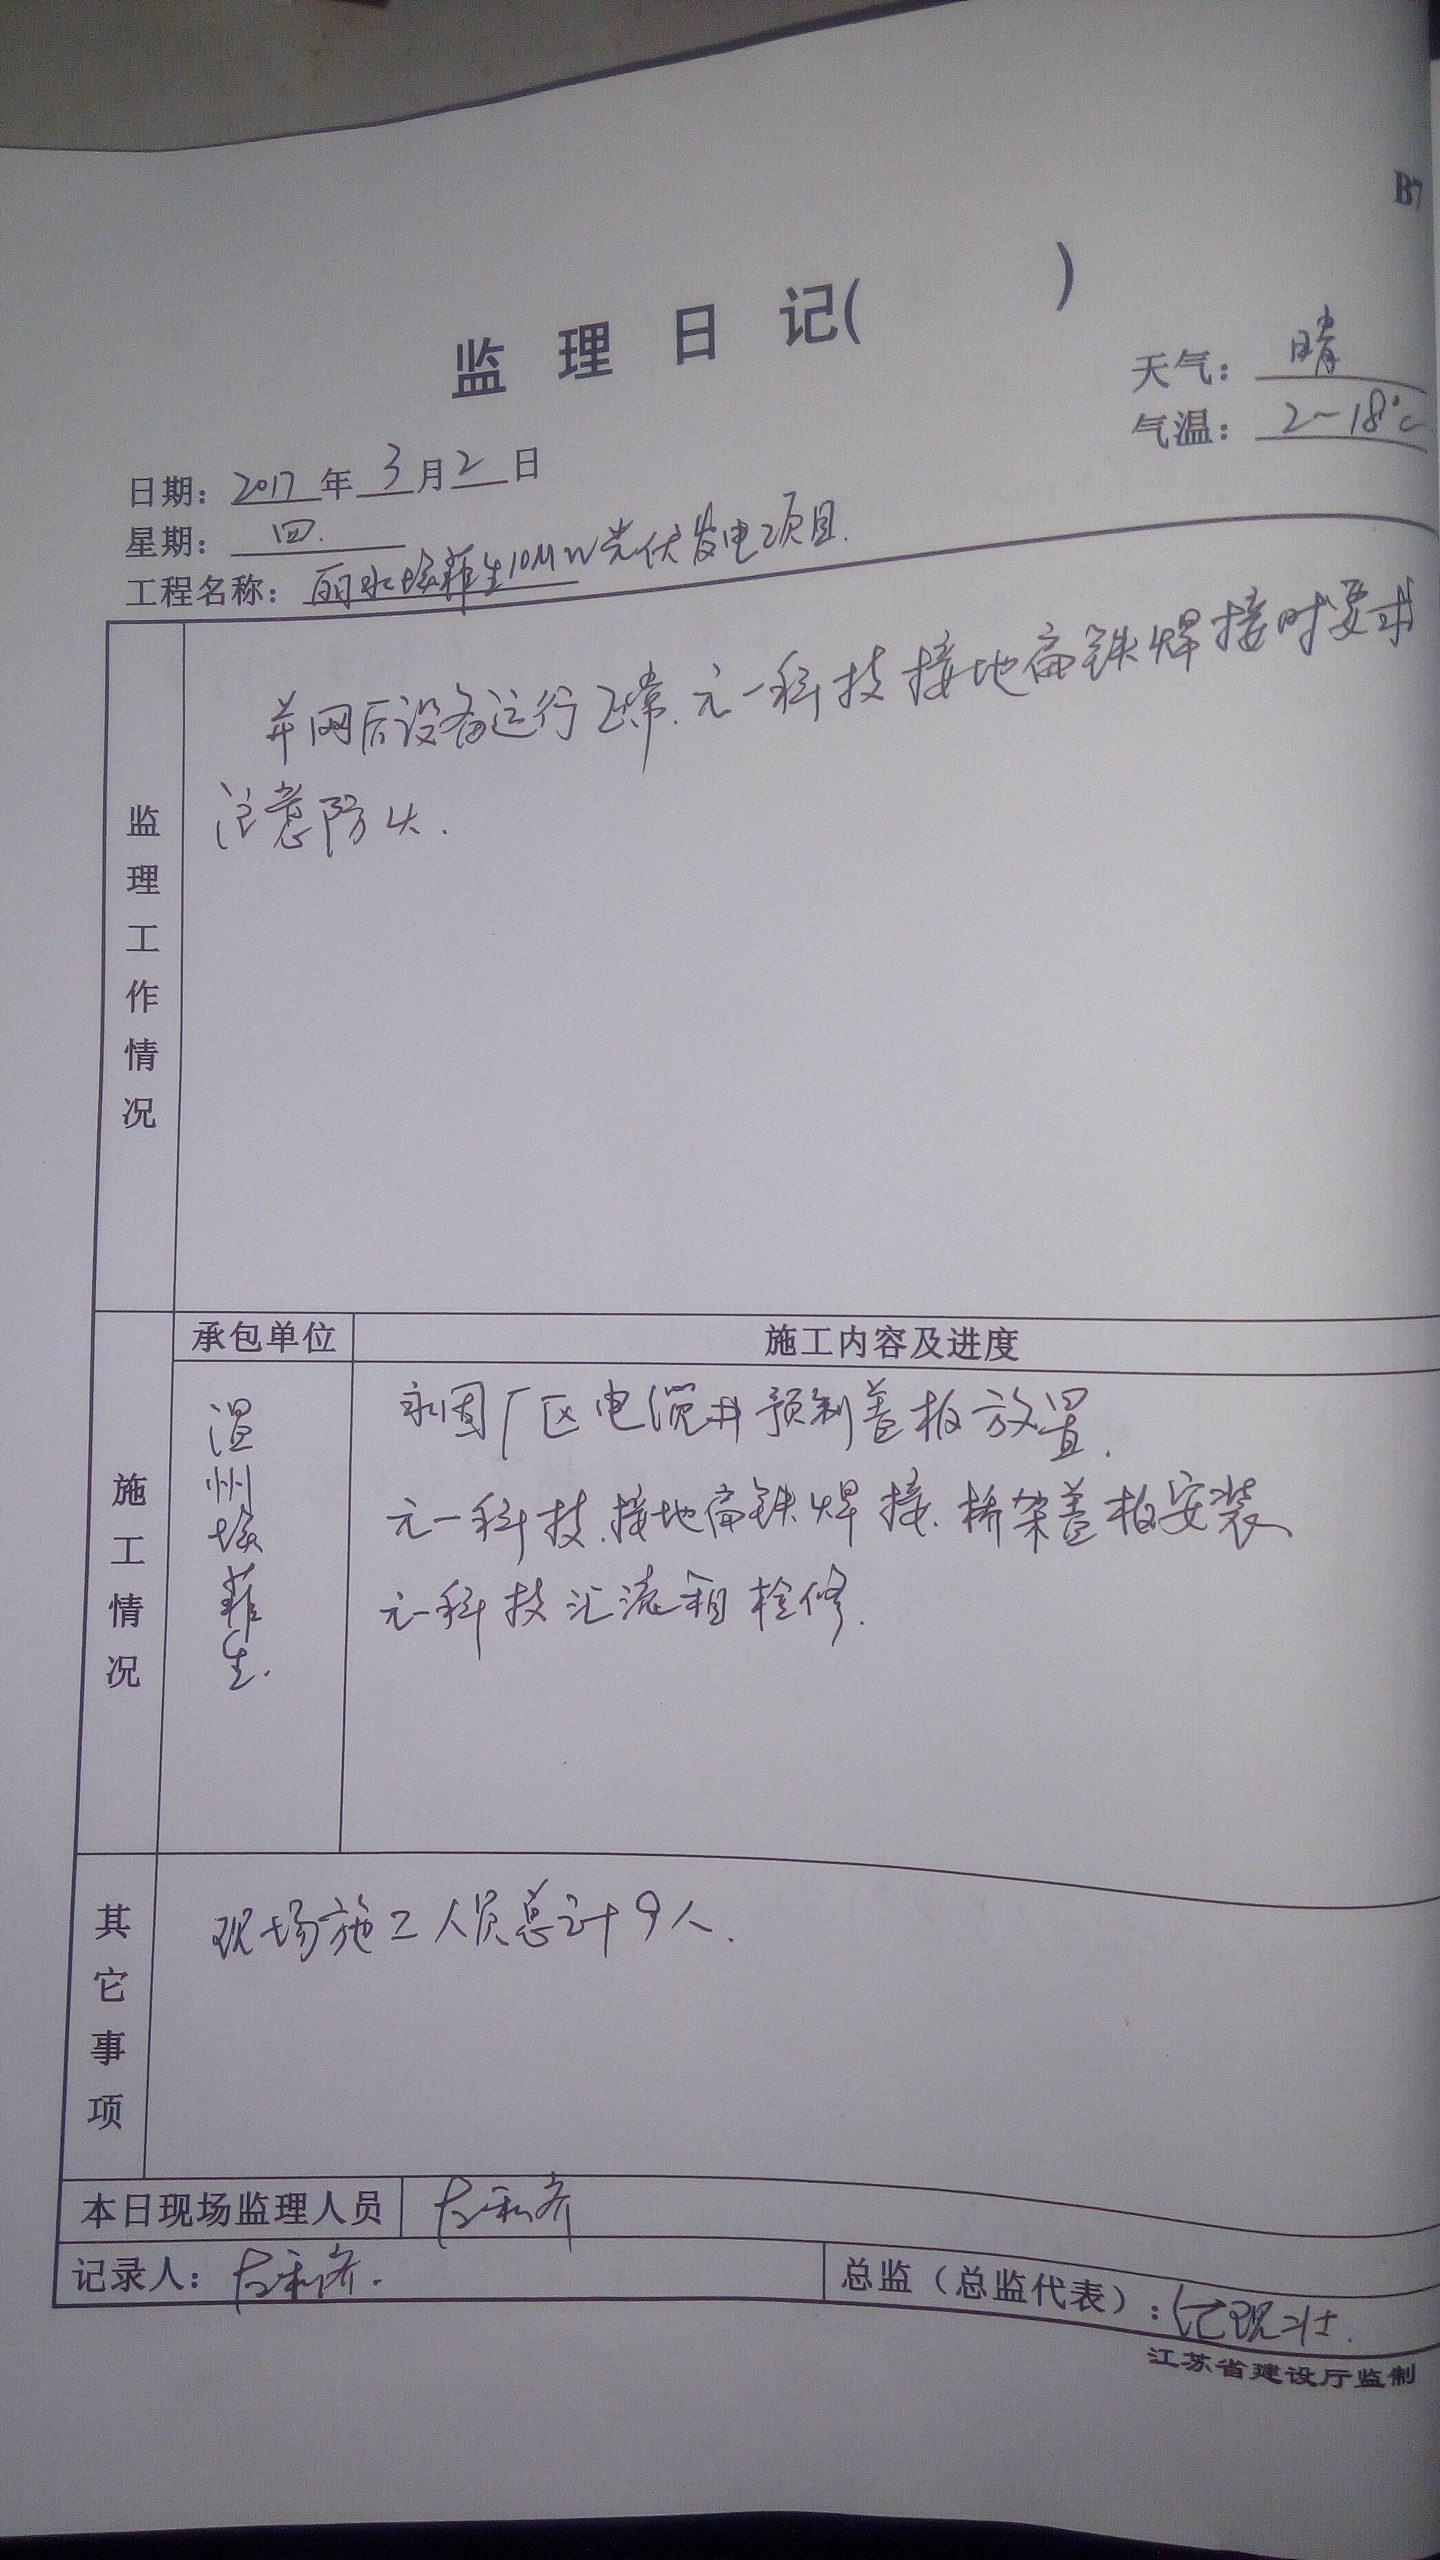 B7
监理日记( )
天气：晴
气温：2~18℃
日期：2017年3月2日
星期：四.
工程名称：丽水埃菲生10MW光伏发电项目.
监理工作情况
并网后设备运行正常.元一科技接地扁铁焊接时要求
注意防火.
施工情况
承包单位
施工内容及进度
温州埃菲生.
永固厂区电缆井预制盖板放置.
元一科技.接地扁铁焊接.桥架盖板安装
元一科技汇流箱检修.
其它事项
现场施工人员总计9人.
本日现场监理人员
记录人：
总监（总监代表）：
江苏省建设厅监制